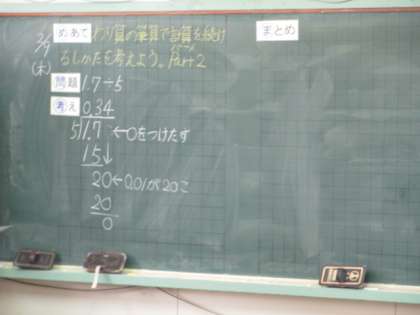 2/9
(木)
めあて わり算の筆算で計算を続け
るしかたを考えよう。Part 2
まとめ
問題 1.7÷5
考え 0.34
5)1.7 ←0をつけたす
15↓
20←0.01が20こ
20
0